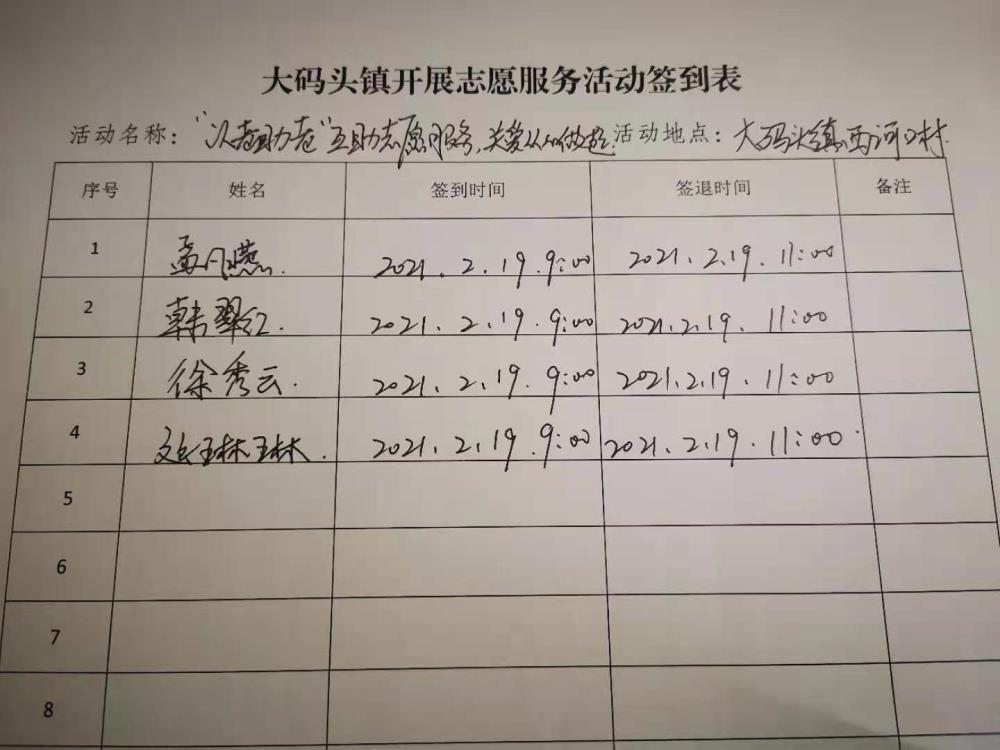 大码头镇开展志愿服务活动签到表
活动名称："以老助老"互助志愿服务，关爱从心做起 活动地点：大码头镇西河口村
序号 姓名 签到时间 签退时间 备注
1 孟凡燕. 2021.2.19.9:00 2021.2.19.11:00
2 韩翠红. 2021.2.19.9:00 2021.2.19.11:00
3 徐秀云. 2021.2.19.9:00 2021.2.19.11:00
4 琳琳. 2021.2.19.9:00 2021.2.19.11:00
5
6
7
8